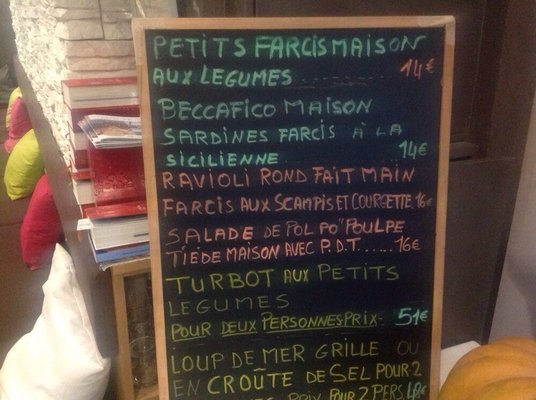 PETITS FARCIS MAISON
AUX LEGUMES ........... 14€
BECCAFICO MAISON
SARDINES FARCIS À LA
SICILIENNE 14€
RAVIOLI ROND FAIT MAIN
FARCIS AUX SCAMPIS ET COURGETTE 16€
SALADE DE POLPO "POULPE
TIEDE MAISON AVEC P.D.T...... 16€
TURBOT AUX PETITS
LEGUMES
POUR DEUX PERSONNES-PRIX- 51€
LOUP DE MER GRILLE OU
EN CROÛTE DE SEL POUR-2
PRIX POUR 2 PERS